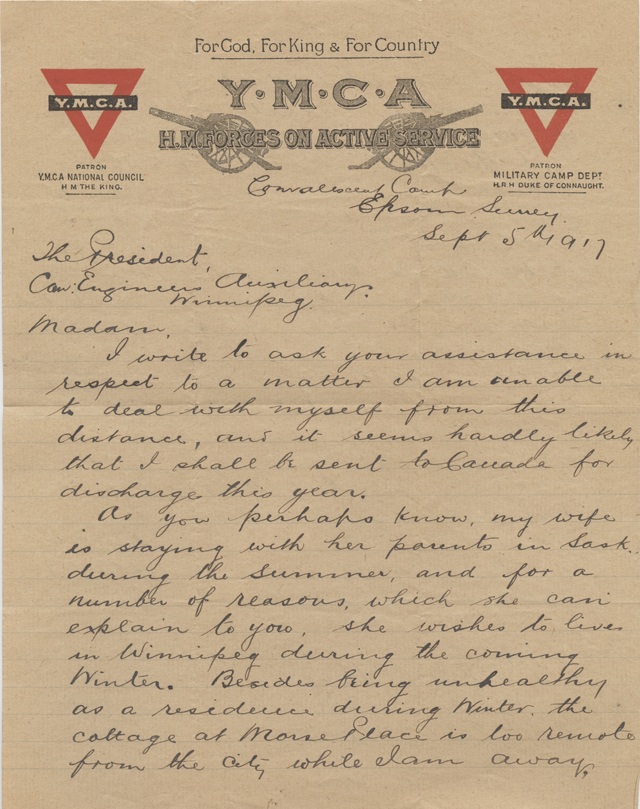 For God, For King & For Country
Y.M.C.A.
Y·M·C·A
Y.M.C.A.
H.M. FORCES ON ACTIVE SERVICE
PATRON
Y.M.C.A NATIONAL COUNCIL
H M THE KING.
PATRON
MILITARY CAMP DEPT
H.R.H DUKE OF CONNAUGHT.
Convalescent Camp
Epsom. Surrey.
Sept 5th 1917
The President,
Can. Engineers Auxiliary.
Winnipeg.
Madam,
I write to ask your assistance in
respect to a matter I am unable
to deal with myself from this
distance, and it seems hardly likely
that I shall be sent to Canada for
discharge this year.
As you perhaps know, my wife
is staying with her parents in Sask.
during the summer, and for a
number of reasons, which she can
explain to you, she wishes to live
in Winnipeg during the coming
Winter. Besides being unhealthy
as a residence during Winter, the
cottage at Morse Place is too remote
from the city while I am away.